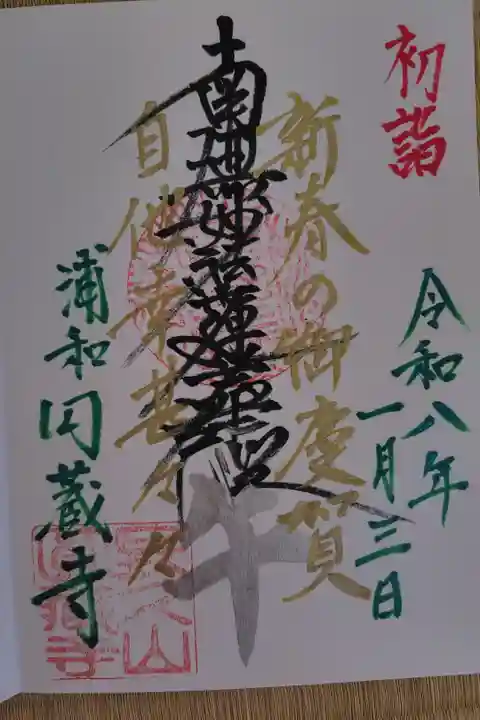 初詣
令和八年
一月三日
新春の御慶賀
南無妙法蓮華經
午
自他幸甚々々
浦和円蔵寺